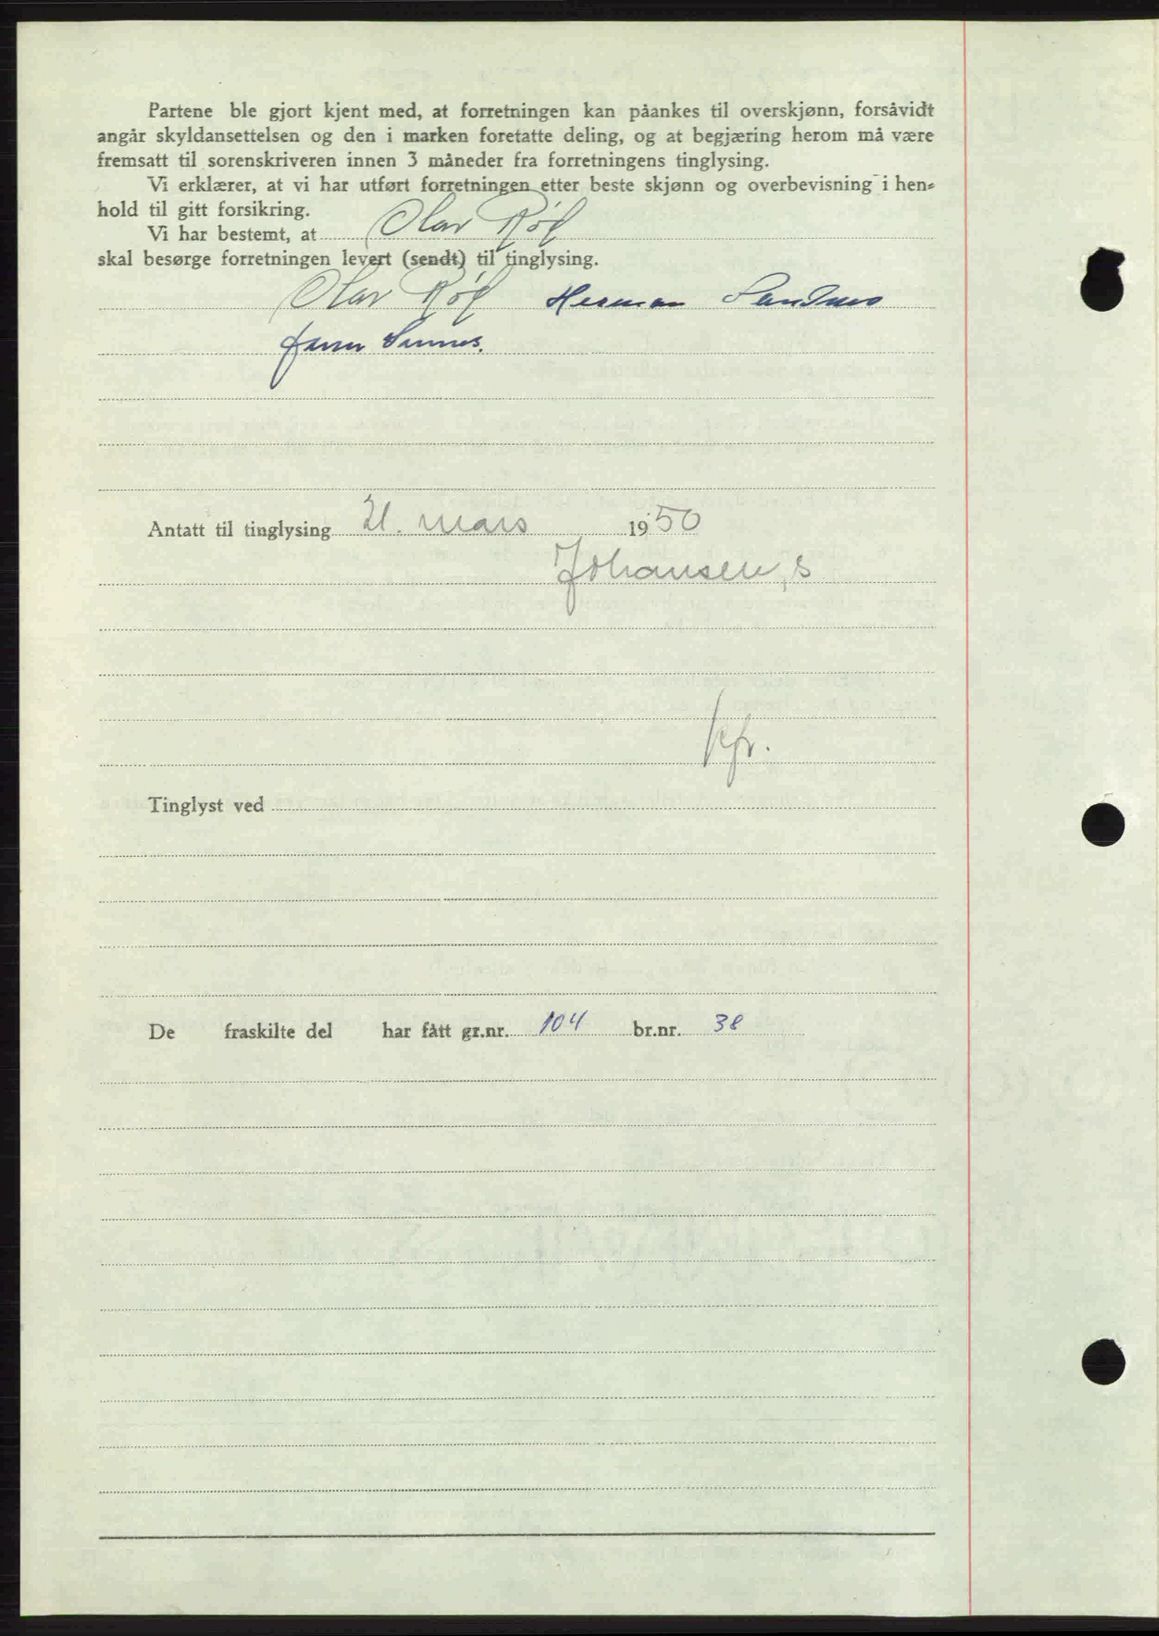 Partene ble gjort kjent med, at forretningen kan påankes til overskjønn, forsåvidt
angår skyldansettelsen og den i marken foretatte deling, og at begjæring herom må være
fremsatt til sorenskriveren innen 3 måneder fra forretningens tinglysing.
Vi erklærer, at vi har utført forretningen etter beste skjønn og overbevisning i hen-
hold til gitt forsikring.
Vi har bestemt, at Olav Röf
skal besørge forretningen levert (sendt) til tinglysing.
Olav Röf Herman Sandnes
Sannes.
Antatt til tinglysing 21. mars 1950
Johansen, s
kfr.
Tinglyst ved
De fraskilte del har fått gr.nr. 104 br.nr. 38